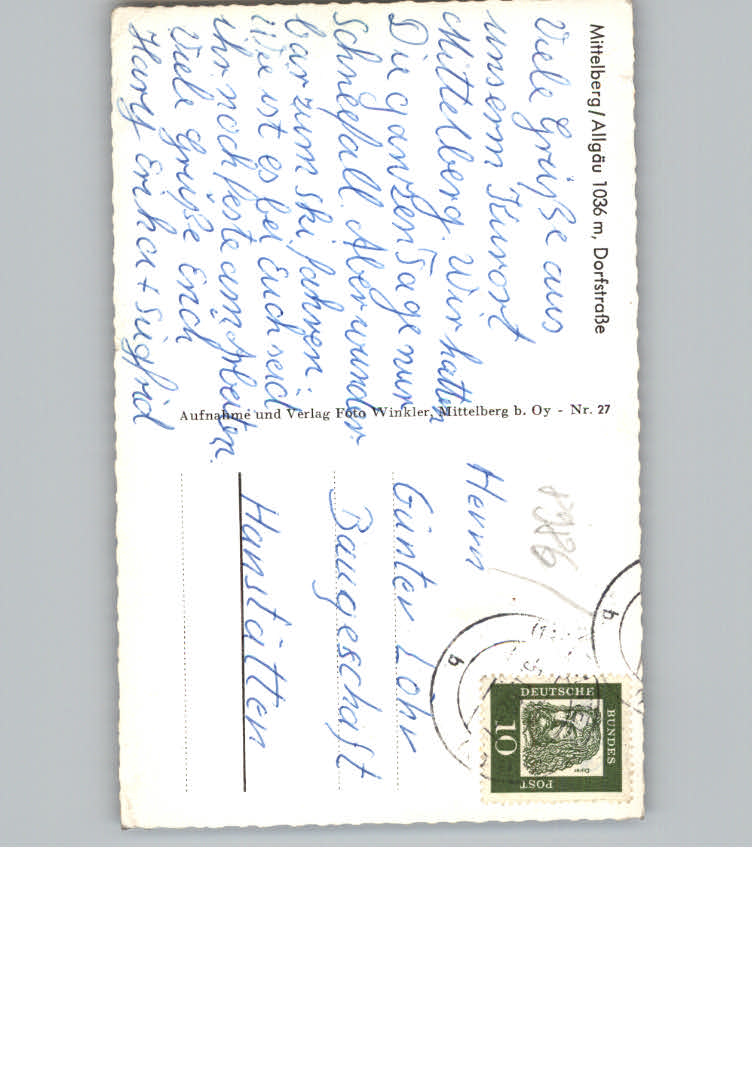 Mittelberg/Allgäu 1036 m, Dorfstraße
Viele Grüße aus
unserm Kurort
Mittelberg. Wir hatten
Die ganzen Tage nur
Schneefall. Aber wunder
bar zum Ski fahren.
Wie ist es bei Euch seid
ihr noch feste am Arbeiten.
Viele Grüße Euch
Harly Erika + Siegfrid
Aufnahme und Verlag Foto Winkler, Mittelberg b. Oy - Nr. 27
Herrn
Günter Löhr
Baugeschäft
Hanstätten
DEUTSCHE
BUNDES
POST
10
Dürer
b
b